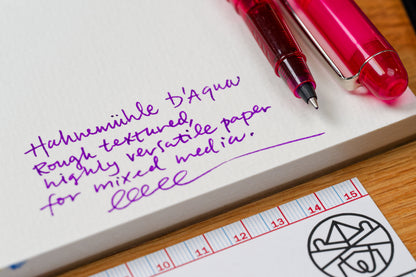 Hahnemühle D'Aqua
Rough textured,
highly versatile paper
for mixed media.
10 11 12 13 14 15